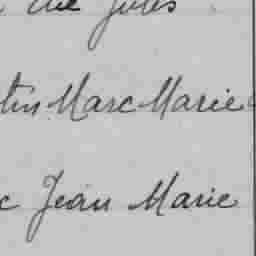 Jules
tin Marc Marie
c Jean Marie